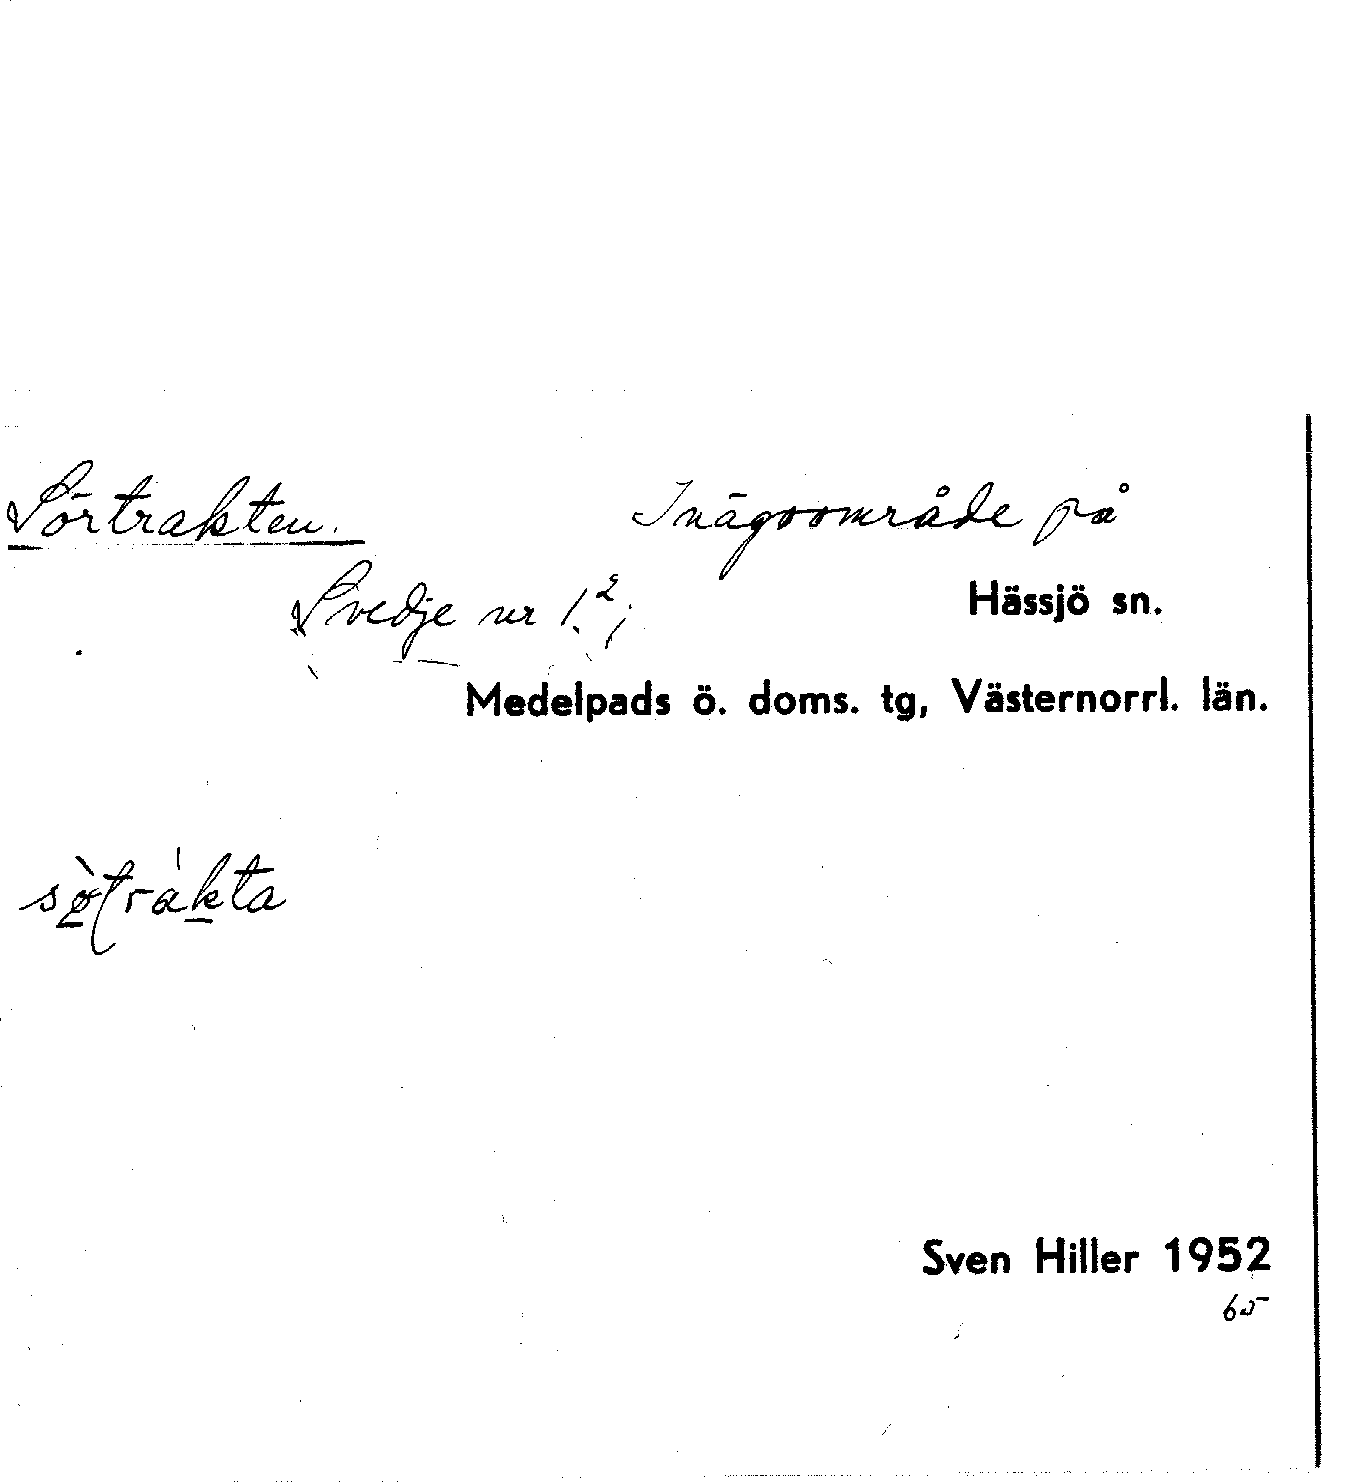 Sörtrakten. Inägoområde på
Svedje nr 1.²;
Hässjö sn.
Medelpads ö. doms. tg, Västernorrl. län.
Sven Hiller 1952
65